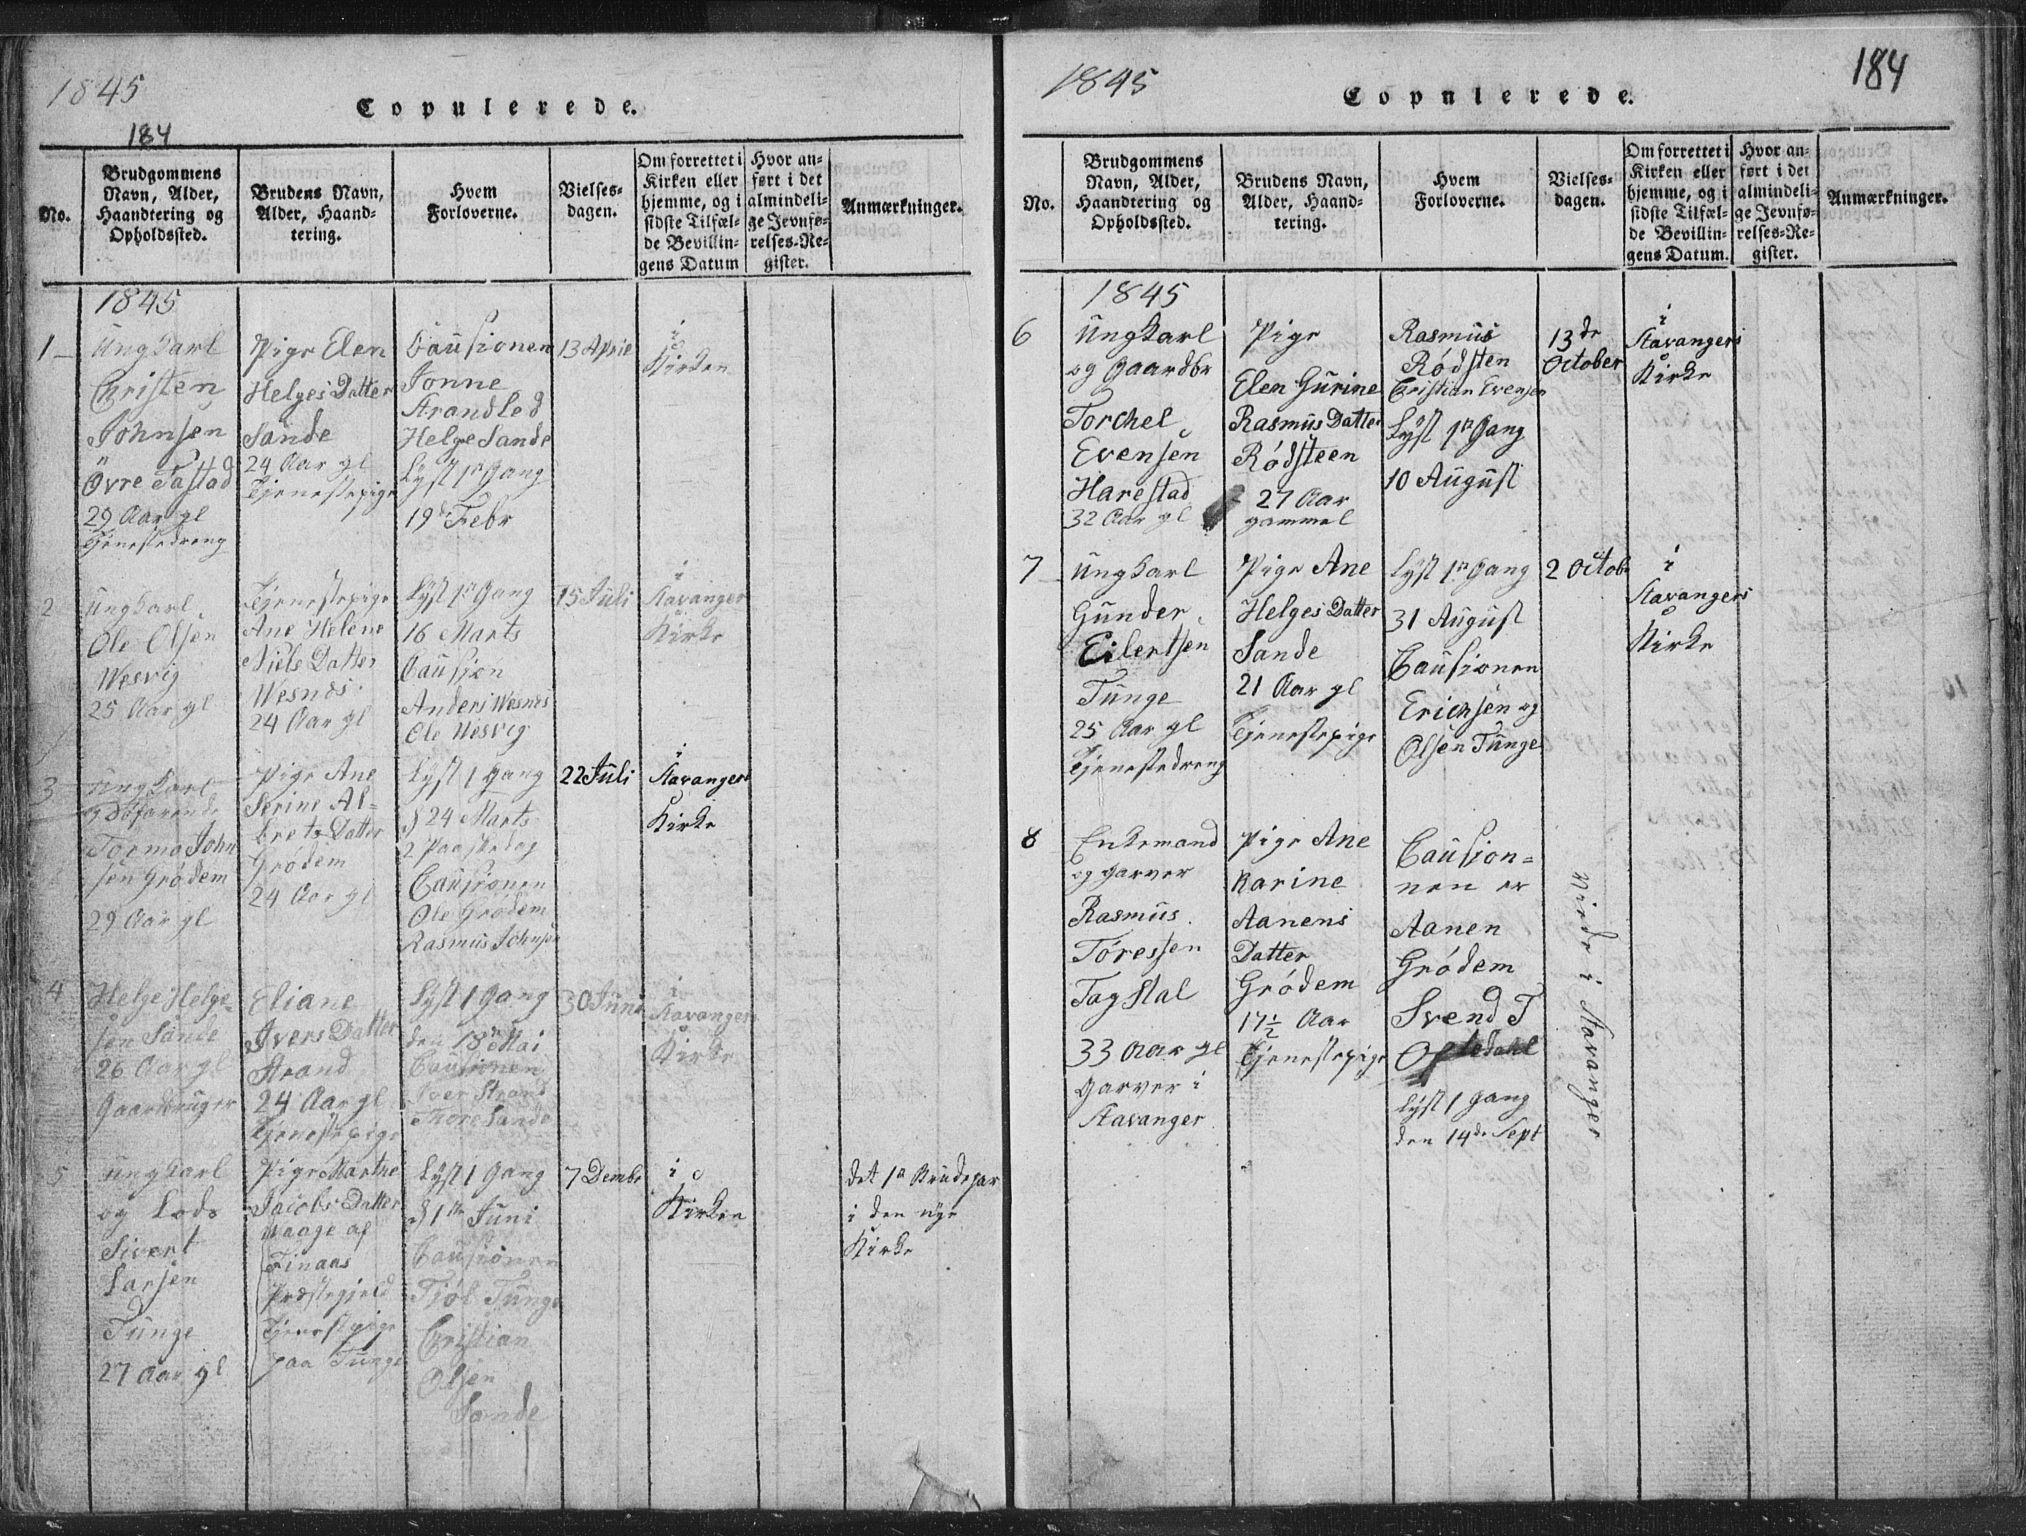 1845
184
Copulerede.
No.
Brudgommens
Navn, Alder,
Haandtering og
Opholdssted.
Brudens Navn,
Alder, Haand-
tering.
Hvem
Forloverne.
Vielses-
dagen.
Om forrettet i
Kirken eller
hjemme, og i
sidste Tilfæl-
de Bevillin-
gens Datum
Hvor an-
ført i det
almindeli-
ge Jevnfø-
relses-Re-
gister.
Anmærkninger.
1845
1
Ungkarl
Christen
Johnsen
Övre Tastad
29 Aar gl
Tjenestedreng
Pige Elen
Helges Datter
Sande
24 Aar gl
Tjenestepige
Causionen
Jonne
Helge Sande
Lyst 1r Gang
19de Febr
13 April
i
Kirken
2
Ungkarl
Ole Olsen
Wesvig
25 Aar gl
Tjenestepige
Ane Helene
Niels Datter
Wesnes
24 Aar gl
Lyst 1r Gang
16 Marts
Causion
Anders Wesnes
Ole Wesvig
15 Juli
i
Stavanger
Kirke
3
Ungkarl
John
sen Grödem
29 Aar gl
Pige Ane
Serine Al-
brets Datter
Grödem
24 Aar gl
Lyst 1 Gang
d 24 Marts
2 Paaskedag
Causionen
Ole Grödem
Rasmus Johnsen
22 Juli
i
Stavangers
Kirke
4
Helge Helge-
sen Sande
26 Aar gl
Gaardbruger
Eliane
Ivers Datter
Strand
24 Aar gl
Tjenestepige
Lyst 1 Gang
den 18 Mai
Causionen
Iver Strand
Thore Sande
30 Juni
i
Stavangers
Kirke
5
Ungkarl
og Lods
Sivert
Larsen
Tunge
27 Aar gl
Pige Marthe
Jacobs Datter
Waage af
Finaas
Præstegjeld
Tjenestpige
paa Tunge
Lyst 1 Gang
d 1ste Juni
Causionen
Tjöl Tunge
Christian
Olsen
Sande
7 Dembr
i
Kirken
det 1ste Brudepar
i den nye
Kirke
1845
184
Copulerede.
No.
Brudgommens
Navn, Alder,
Haandtering og
Opholdssted.
Brudens Navn,
Alder, Haand-
tering.
Hvem
Forloverne.
Vielses-
dagen.
Om forrettet i
Kirken eller
hjemme, og i
sidste Tilfæl-
de Bevillin-
gens Datum.
Hvor an-
ført i det
almindeli-
ge Jevnfø-
relses-Re-
gister.
Anmærkninger.
1845
6
Ungkarl
og Gaardbr
Torchel
Evensen
Harestad
32 Aar gl
Pige
Elen Gurine
Rasmus Datter
Rödsteen
27 Aar
gammel
Rasmus
Rödsten
Christian Evensen
Lyst 1r Gang
10 August
13de
October
i
Stavangers
Kirke
7
Ungkarl
Gunder
Eilertsen
Tunge
25 Aar gl
Tjenestedreng
Pige Ane
Helges Datter
Sande
21 Aar gl
Tjenestepige
Lyst 1r Gang
31 August
Causionen
Erichsen og
Olsen Tunge
2 Octobr
i
Stavangers
Kirke
8
Enkemand
og Garver
Rasmus
Töressen
Tagstal
33 Aar gl
Garver i
Stavanger
Pige Ane
Karine
Aanens
Datter
Grödem
17½ Aar
Tjenestepige
Causion=
nen er
Aanen
Grödem
Svend T
Oftedahl
Lyst 1 Gang
den 14de Sept
Viede i Stavanger